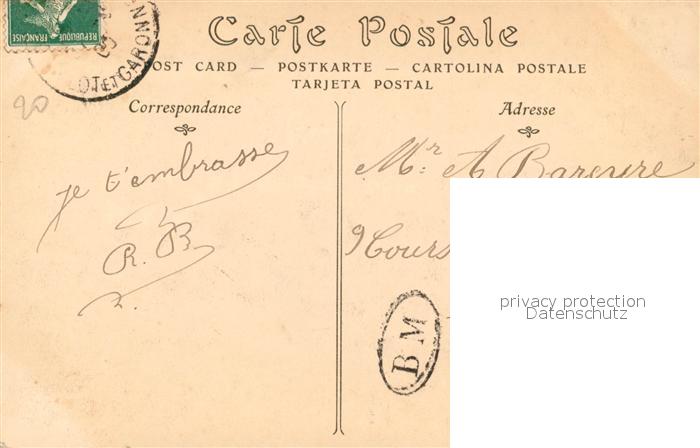 REPUBLIQUE FRANÇAISE
OT-ET-GARONNE
Carte Postale
POST CARD — POSTKARTE — CARTOLINA POSTALE
TARJETA POSTAL
20
Correspondance
je t'embrasse
R. B
Adresse
Mr. A Bareyre
9 Cours
BM
privacy protection
Datenschutz